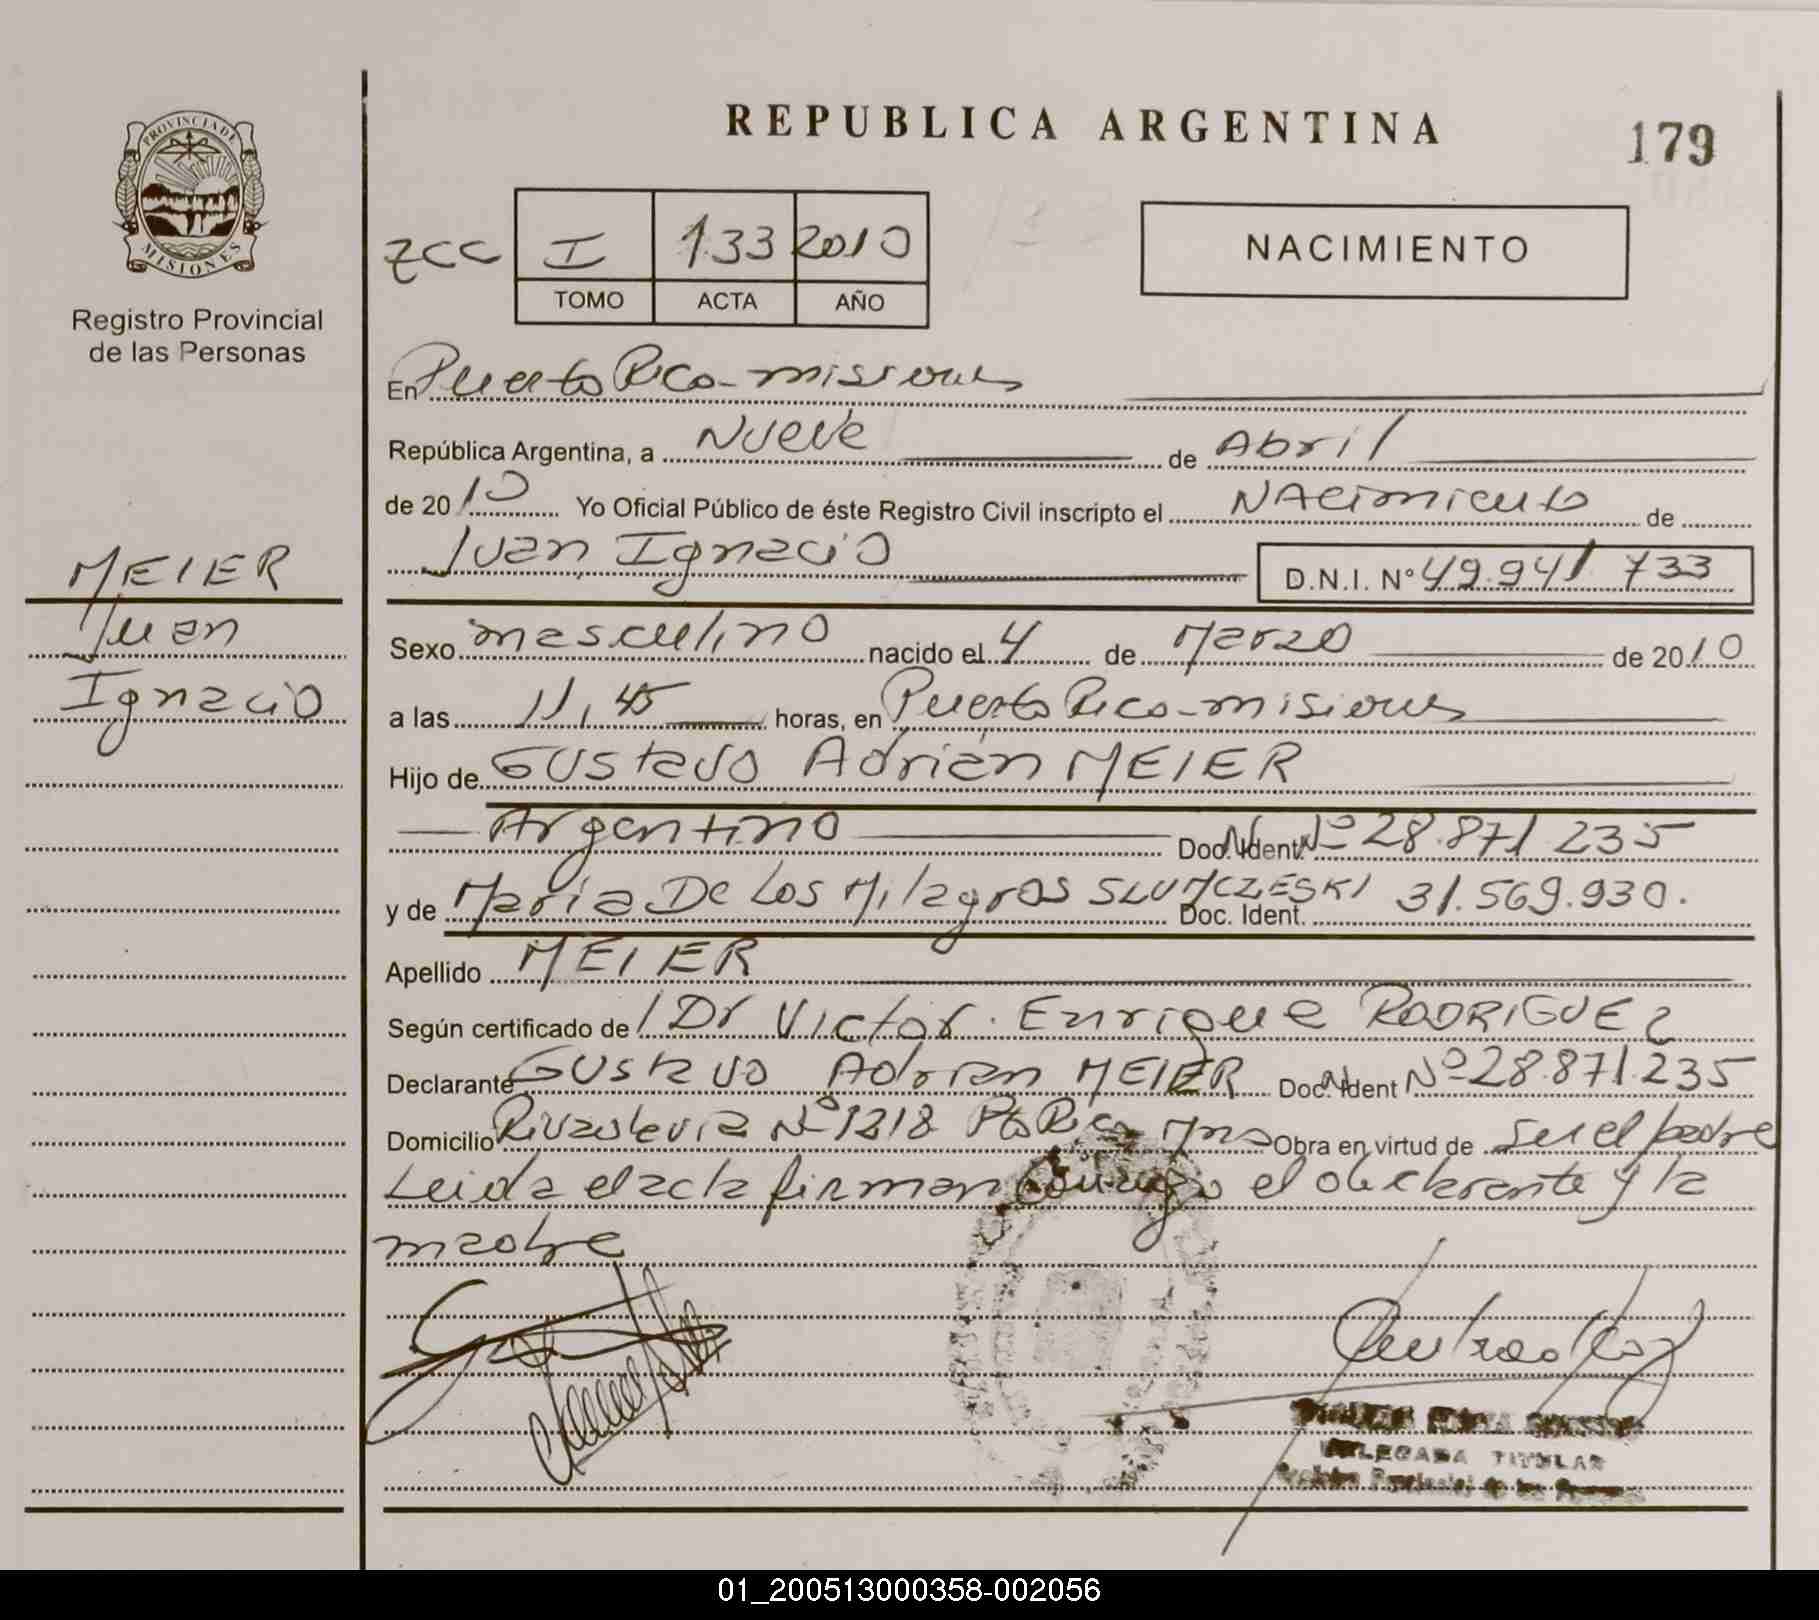 REPUBLICA ARGENTINA
179
PROVINCIA DE
MISIONES
Registro Provincial
de las Personas
ZCC I 133 2010
TOMO ACTA AÑO
NACIMIENTO
En Puerto Rico - misiones
República Argentina, a Nueve de Abril
de 2010 Yo Oficial Público de éste Registro Civil inscripto el NAcimiento de
Juan Ignacio D.N.I. N° 49.941 733
MEIER
Juan
Ignacio
Sexo masculino nacido el 4 de Marzo de 2010
a las 11,45 horas, en Puerto Rico - misiones
Hijo de Gustavo Adrián MEIER
Argentino Doc. Ident. Nº 28.871 235
y de María De Los Milagros SLUMCZESKI Doc. Ident. 31.569.930.
Apellido MEIER
Según certificado del Dr Victor Enrique RODRIGUEZ
Declarante Gustavo Adrian MEIER Doc. Ident Nº 28.871.235
Domicilio Rivadavia Nº 1218 Pto Rico Mnes Obra en virtud de ser el padre
Leida el acta firman conmigo el declarante y la
madre
DELEGADA TITULAR
Registro Provincial de las Personas
01_200513000358-002056